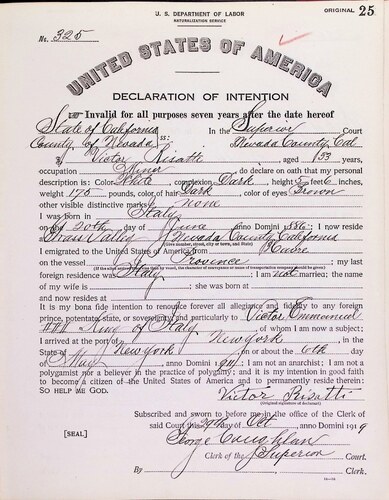 U. S. DEPARTMENT OF LABOR
NATURALIZATION SERVICE
ORIGINAL 25
No. 325
UNITED STATES OF AMERICA
DECLARATION OF INTENTION
Invalid for all purposes seven years after the date hereof
State of California
County of Nevada ss:
In the Superior Court
Nevada County, Cal
I, Victor Risatti, aged 33 years,
occupation Miner, do declare on oath that my personal
description is: Color White, complexion Dark, height 5 feet 6 inches,
weight 175 pounds, color of hair Dark, color of eyes Brown
other visible distinctive marks none
I was born in Italy
on the 20th day of June, anno Domini 1886; I now reside
at Grass Valley, Nevada County, California
(Give number, street, city or town, and State)
I emigrated to the United States of America from Havre
on the vessel Province; my last
foreign residence was Italy; I am not married; the name
of my wife is; she was born at
and now resides at
It is my bona fide intention to renounce forever all allegiance and fidelity to any foreign
prince, potentate, state, or sovereignty, and particularly to Victor Emmanuel
III King of Italy, of whom I am now a subject;
I arrived at the port of New York, in the
State of New York, on or about the 6th day
of May, anno Domini 1911; I am not an anarchist; I am not a
polygamist nor a believer in the practice of polygamy; and it is my intention in good faith
to become a citizen of the United States of America and to permanently reside therein:
SO HELP ME GOD.
Victor Risatti
(Original signature of declarant)
Subscribed and sworn to before me in the office of the Clerk of
said Court this 29th day of Oct, anno Domini 1919
[SEAL]
George Coughlan
Clerk of the Superior Court.
By, Clerk.